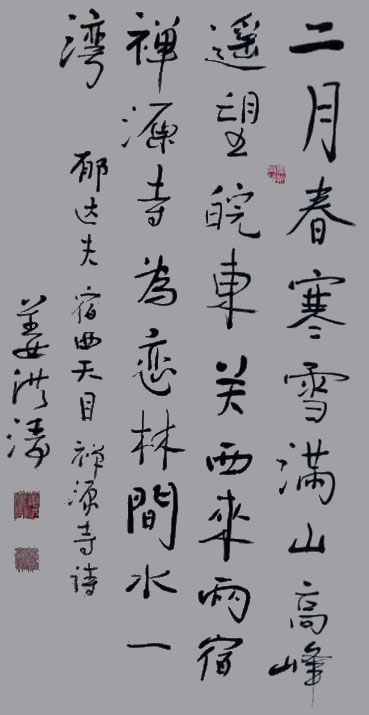 二月春寒雪满山高峰
遥望皖東关西來两宿
禅源寺為恋林間水一
湾 郁达夫 宿西天目禅源寺诗
姜洪涛